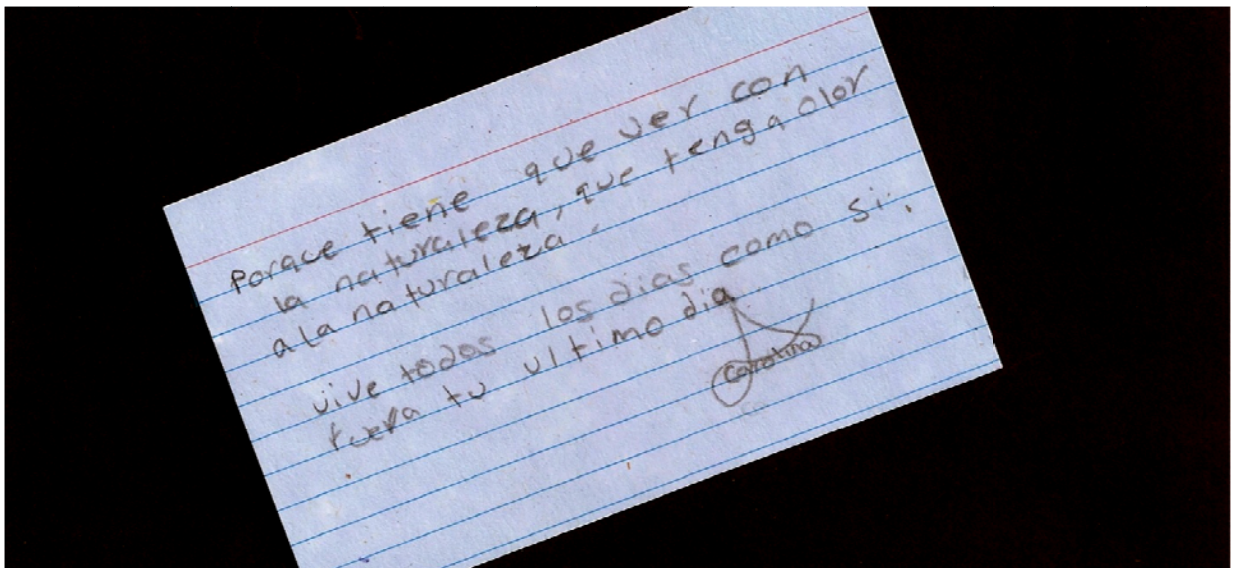 Porque tiene que ver con
la naturaleza, que tenga olor
a la naturaleza.
vive todos los dias como si.
fuera tu ultimo dia
Carolina